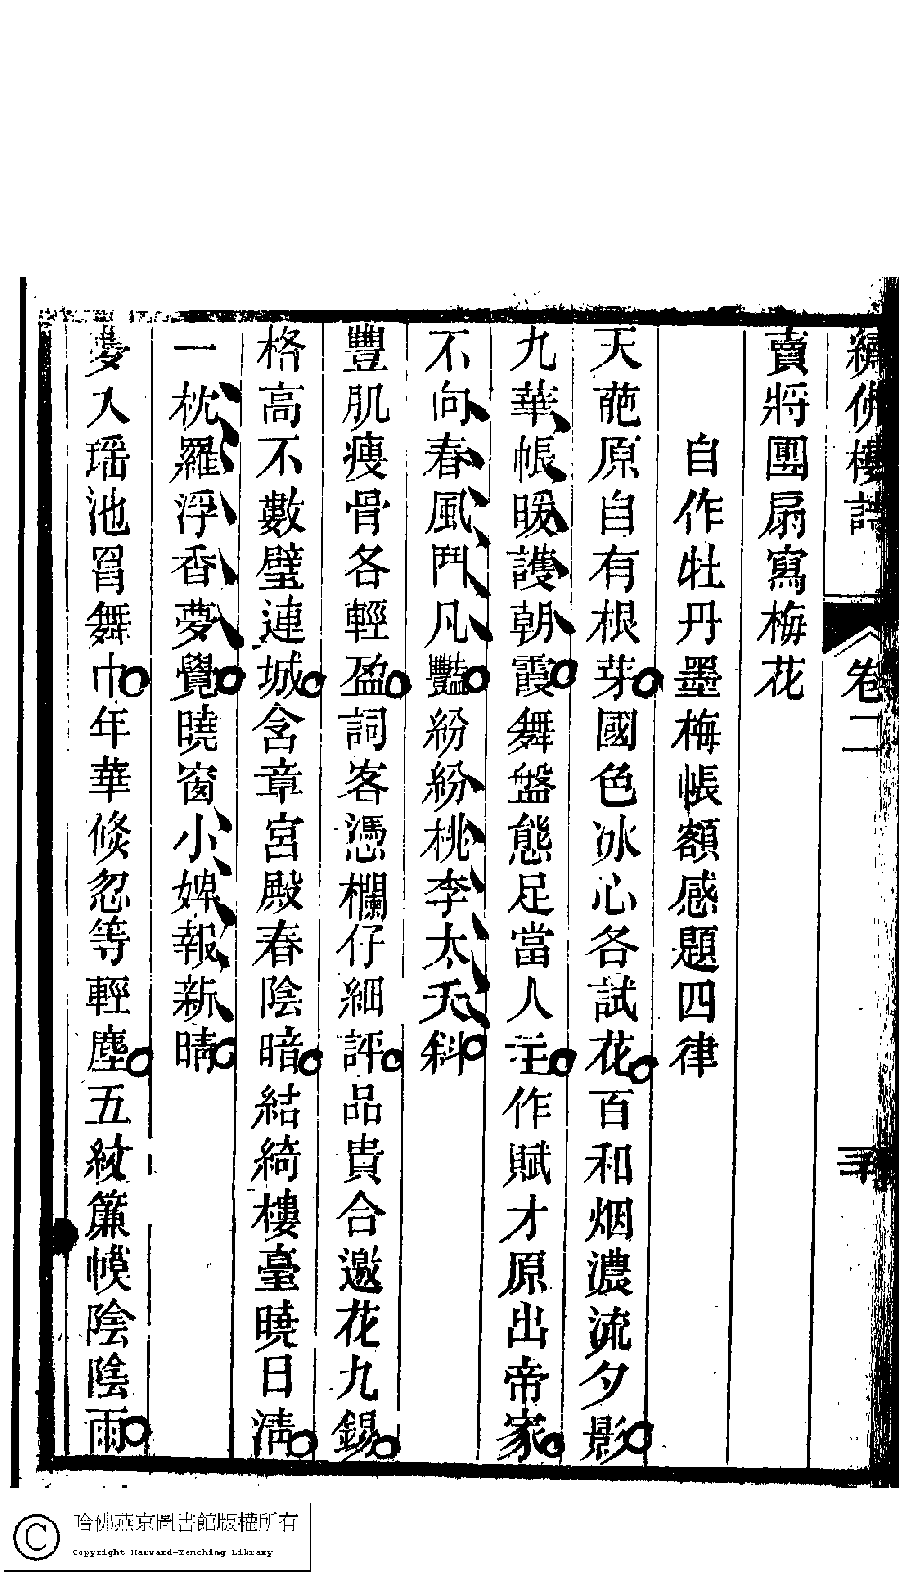 繡佛樓詩
卷二
賣將團扇寫梅花
自作牡丹墨梅帳額感題四律
天葩原自有根芽國色冰心各試花百和烟濃流夕影
九華帳暖護朝霞舞盤態足當人主作賦才原出帝家
不向春風鬥凡豔紛紛桃李太夭斜
豐肌瘦骨各輕盈詞客憑欄仔細評品貴合邀花九錫
格高不數璧連城含章宮殿春陰暗結綺樓臺曉日淸
一枕羅浮香夢覺曉窗小婢報新晴
夢入瑶池罥舞巾年華倐忽等輕塵五紋簾幙陰陰雨
哈佛燕京圖書館版權所有
Copyright Harvard-Yenching Library